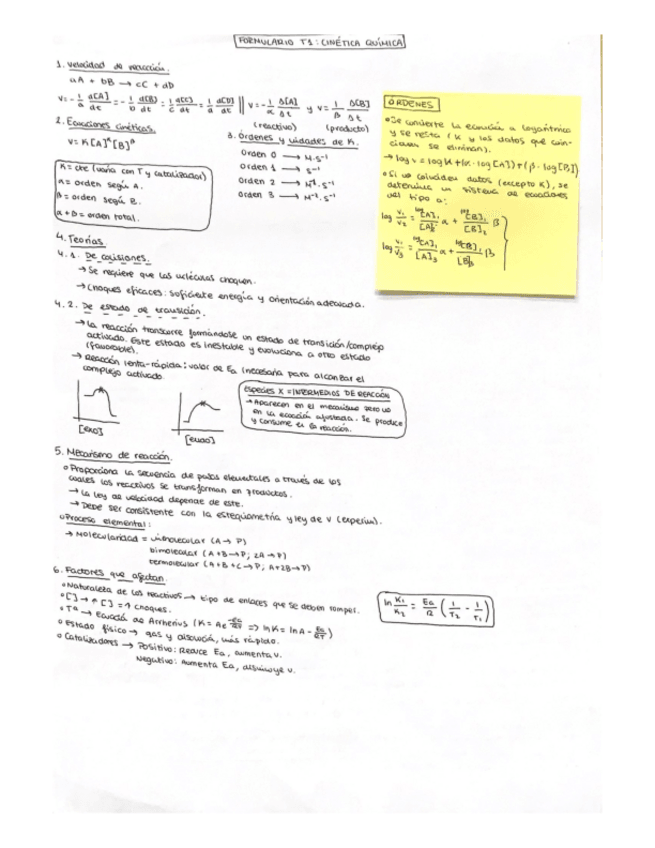 FORMULARIO T1: CINÉTICA QUÍMICA
1. Velocidad de reacción.
aA + bB → cC + dD
v = - 1/a d[A]/dt = - 1/b d[B]/dt = 1/c d[C]/dt = 1/d d[D]/dt || v = - 1/α Δ[A]/Δt y v = 1/β Δ[B]/Δt
(reactivo) (producto)
2. Ecuaciones cinéticas.
v = K[A]^α [B]^β
K = cte (varía con T y catalizador)
α = orden según A.
β = orden según B.
α + β = orden total.
3. Órdenes y uidades de K.
Orden 0 → M·s⁻¹
Orden 1 → s⁻¹
Orden 2 → M⁻¹·s⁻¹
Orden 3 → M⁻²·s⁻¹
ÓRDENES
Se convierte la ecuación a logarítmica
y se resta (K y los datos que coin-
ciden se eliminan).
→ log v = log K + (α · log [A]) + (β · log [B])
Si no coinciden datos (excepto K), se
determina un sistema de ecuaciones
del tipo a:
log v₁/v₂ = log [A]₁/[A]₂ α + log [B]₁/[B]₂ β
log v₁/v₃ = log [A]₁/[A]₃ α + log [B]₁/[B]₃ β
4. Teorías.
4.1. De colisiones.
→ Se requiere que las moléculas choquen.
→ Choques eficaces: suficiente energía y orientación adecuada.
4.2. De estado de transición.
→ La reacción transcurre formándose un estado de transición/complejo
activado. Este estado es inestable y evoluciona a otro estado
(favorable).
→ Reacción lenta-rápida: valor de Ea (necesaria para alcanzar el
complejo activado.
[exo]
[endo]
Especies X = INTERMEDIOS DE REACCIÓN
→ Aparecen en el mecanismo pero no
en la ecuación ajustada. Se produce
y consume en la reacción.
5. Mecanismo de reacción.
Proporciona la secuencia de pasos elementales a través de los
cuales los reactivos se transforman en productos.
→ La ley de velocidad depende de este.
→ Debe ser consistente con la estequiometría y ley de v (experim).
Proceso elemental:
→ Molecularidad = unimolecular (A → P)
bimolecular (A+B → P; 2A → P)
termolecular (A+B+C → P; A+2B → P)
6. Factores que afectan.
Naturaleza de los reactivos → tipo de enlaces que se deben romper.
[ ] → ↑ [ ] = ↑ choques.
Tª → Ecuación de Arrhenius (K = A e^-Ea/RT => ln K = ln A - Ea/RT)
Estado físico → gas y disolución, más rápido.
Catalizadores → Positivo: Reduce Ea, aumenta v.
Negativo: Aumenta Ea, disminuye v.
ln K₁/K₂ = Ea/R (1/T₂ - 1/T₁)